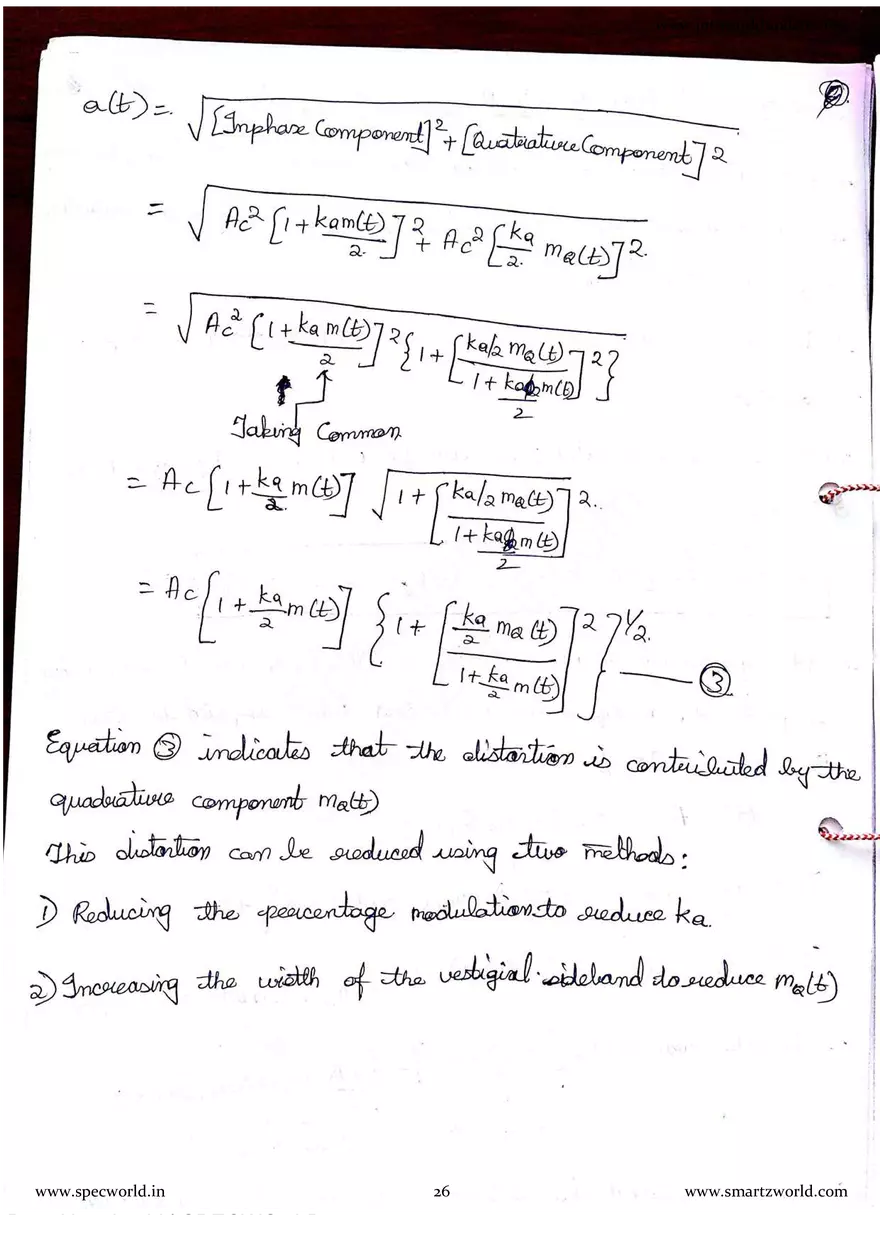 a(t) = √([Inphase Component]² + [Quadrature Component]²)
= √(Ac² [1 + kam(t)/2]² + Ac² [ka/2. mQ(t)]²)
= √(Ac² [1 + ka m(t)/2]² {1 + [ka/2 mQ(t) / 1 + ka m(t)/2]²})
Taking Common
= Ac [1 + ka/2 m(t)] √(1 + [ka/2 mQ(t) / 1 + ka m(t)/2]²)
= Ac [1 + ka/2 m(t)] {1 + [ka/2 mQ(t) / 1 + ka/2 m(t)]²}^1/2. — ③
Equation ③ indicates that the distortion is contributed by the
quadrature component mQ(t)
This distortion can be reduced using two methods:
1) Reducing the percentage modulation to reduce ka.
2) Increasing the width of the vestigial sideband to reduce mQ(t)
www.specworld.in 26 www.smartzworld.com